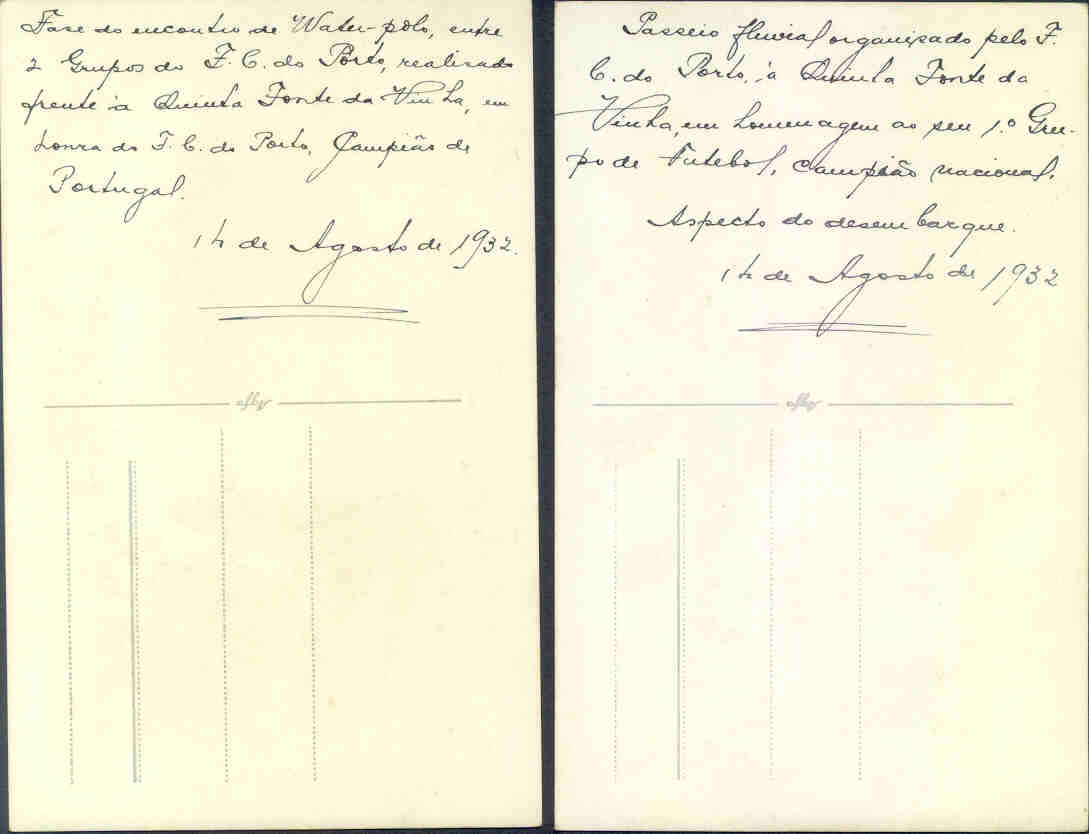 Fase do encontro de Water-polo, entre
2 Grupos do F. C. do Porto, realisado
frente à Quinta Fonte da Vinha, em
honra do F. C. do Porto, Campião de
Portugal.
14 de Agosto de 1932.
Passeio fluvial organisado pelo F.
C. do Porto, à Quinta Fonte da
Vinha, em homenagem ao seu 1.º Gru-
po de Futebol, campião nacional.
Aspecto do desembarque.
14 de Agosto de 1932